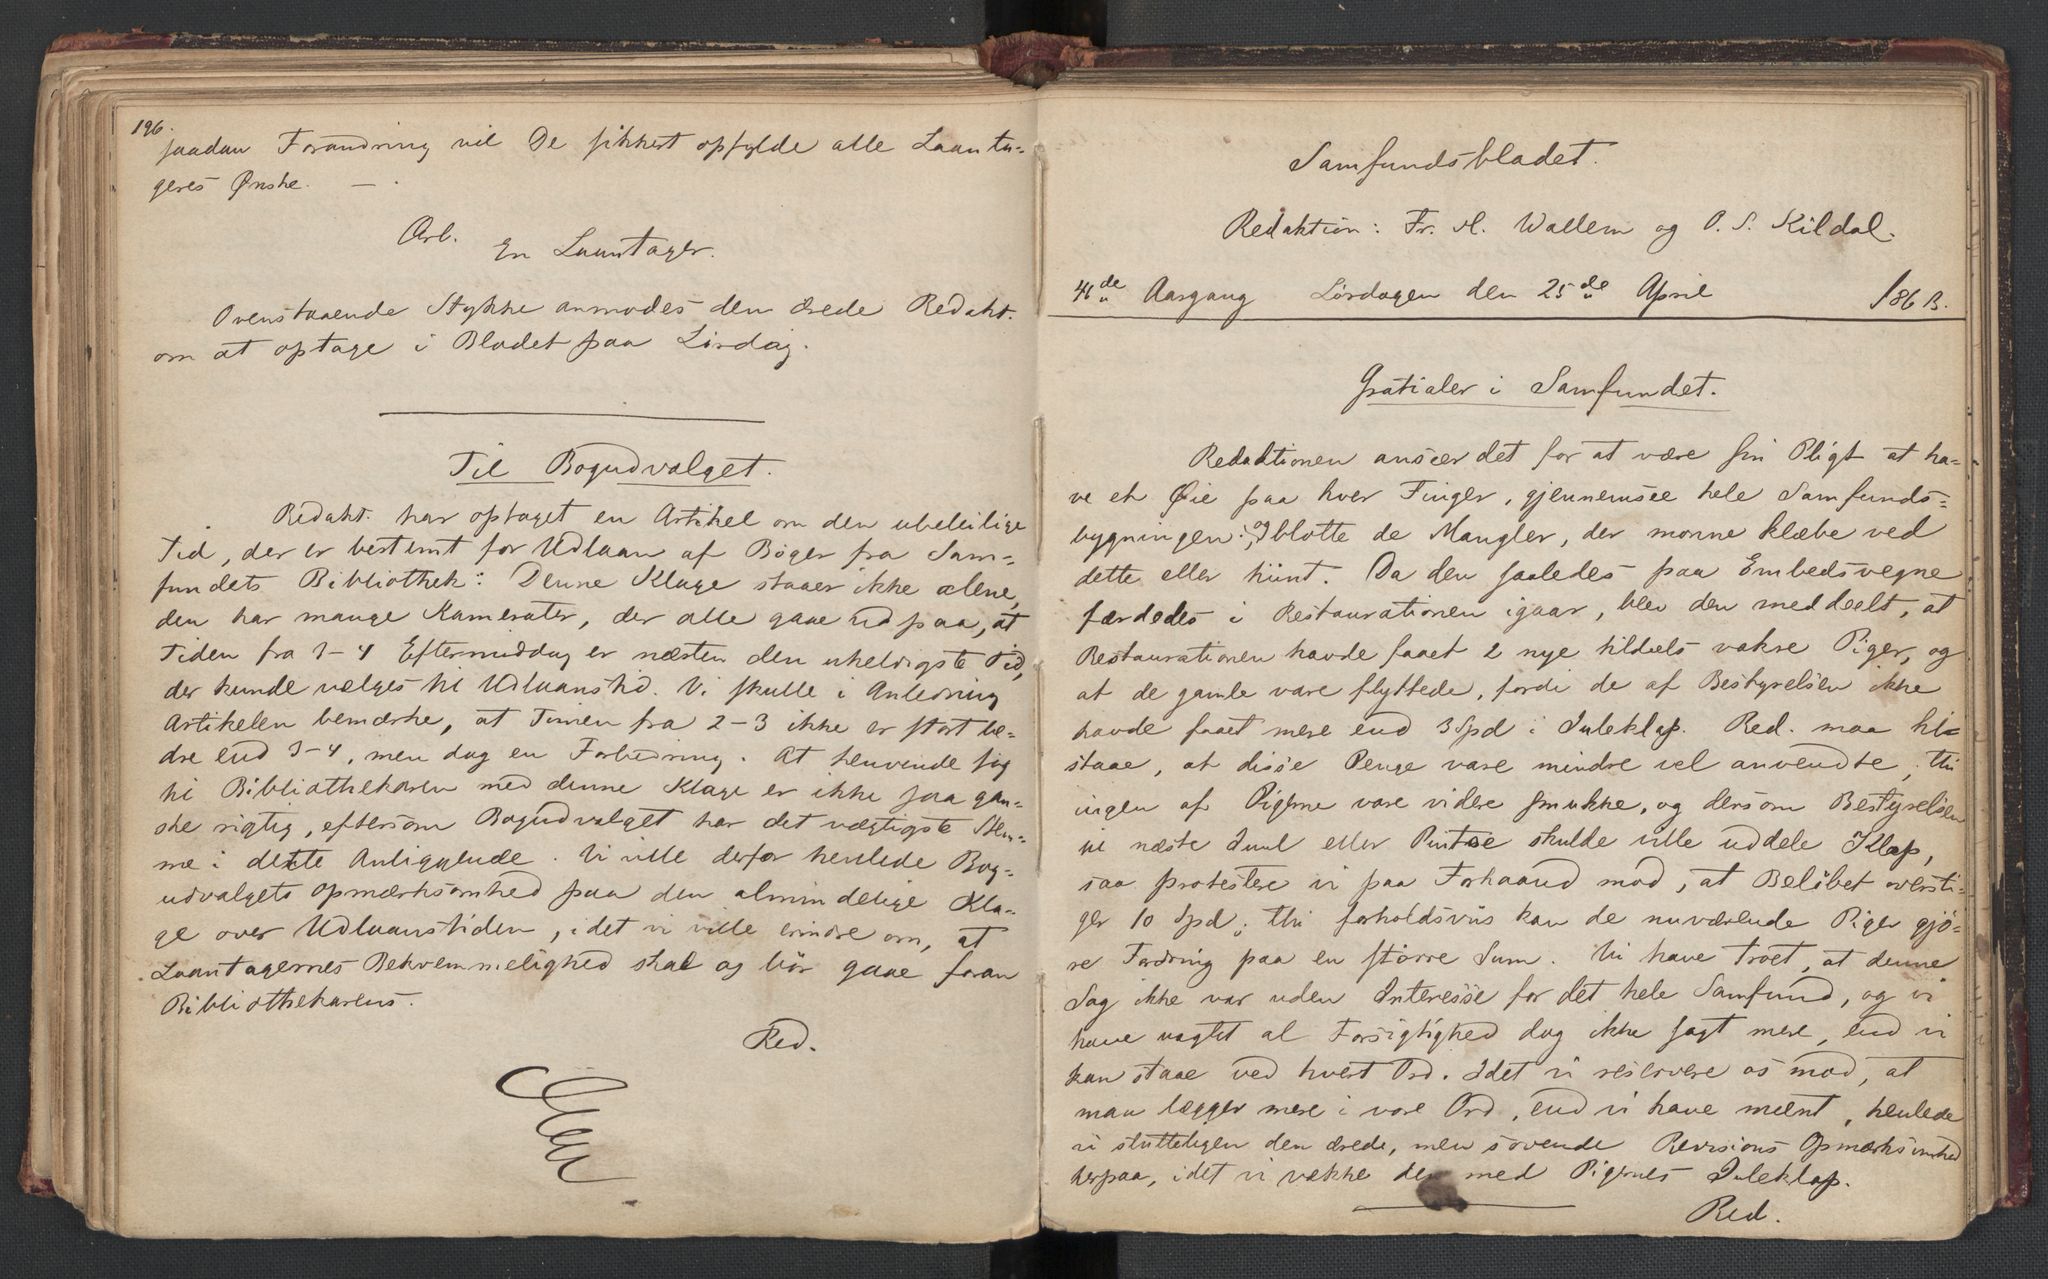 196.
saadan Forandring vil De sikkert opfylde alle Laanta-
geres Ønske. — .
Arb.
En Laantager.
Ovenstaaende Stykke anmodes den ærede Redakt.
om at optage i Bladet paa Lördag.
Til Bogudvalget.
Redakt. har optaget en Artikel om den ubeleilige
Tid, der er bestemt for Udlaan af Bøger fra Sam-
fundets Bibliothek: Denne Klage staaer ikke alene,
den har mange Kamerater, der alle gaae ud paa, at
Tiden fra 3-4 Eftermiddag er næsten den uheldigste Tid,
der kunde vælges til Udlaanstid. Vi skulle i Anledning
Artikelen bemærke, at Timen fra 2-3 ikke er stort be-
dre end 3-4, men dog en Forbedring. At henvende sig
til Bibliothekaren med denne Klage er ikke saa gan-
ske rigtig, eftersom Bogudvalget har det vægtigste Stem-
me i dette Anliggende. Vi ville derfor henlede Bog-
udvalgets Opmærksomhed paa den almindelige Kla-
ge over Udlaanstiden, idet vi ville erindre om, at
Laantagernes Bekvemmelighed skal og bör gaae foran
Bibliothekarens.
Red.
Samfundsbladet.
Redaktion: Fr. M. Wallem og O. S. Kildal.
4de Aargang Lördagen den 25de April 1863.
Gratialer i Samfundet.
Redaktionen anseer det for at være sin Pligt at ha-
ve et Øie paa hver Finger, gjennemsee hele Samfunds-
bygningen, og blotte de Mangler, der monne klæbe ved
dette eller hiint. Da den saaledes paa Embedsvegne
færdedes i Restaurationen igaar, blev den meddeelt, at
Restaurationen havde faaet 2 nye tildels vakre Piger, og
at de gamle vare flyttede, fordi de af Bestyrelsen ikke
havde faaet mere end 3 Spd i Juleklap. Red. maa til-
staae, at disse Penge vare mindre vel anvendte, thi
ingen af Pigerne vare videre smukke, og dersom Bestyrelsen
til næste Juul eller Pintse skulde ville uddele Klap,
saa protestere vi paa Forhaand mod, at Belöbet oversti-
ger 10 Spd; thi forholdsviis kan de nuværende Piger gjö-
re Fordring paa en större Sum. Vi have troet, at denne
Sag ikke var uden Interesse for det hele Samfund, og vi
have vagtet al Forsigtighed dog ikke sagt mere, end vi
kan staae ved hvert Ord. Idet vi reservere os mod, at
man lægger mere i vore Ord, end vi have meent, henlede
vi slutteligen den ærede, men sovende Revisions Opmærksomhed
herpaa, idet vi vække den med Pigernes Juleklap.
Red.